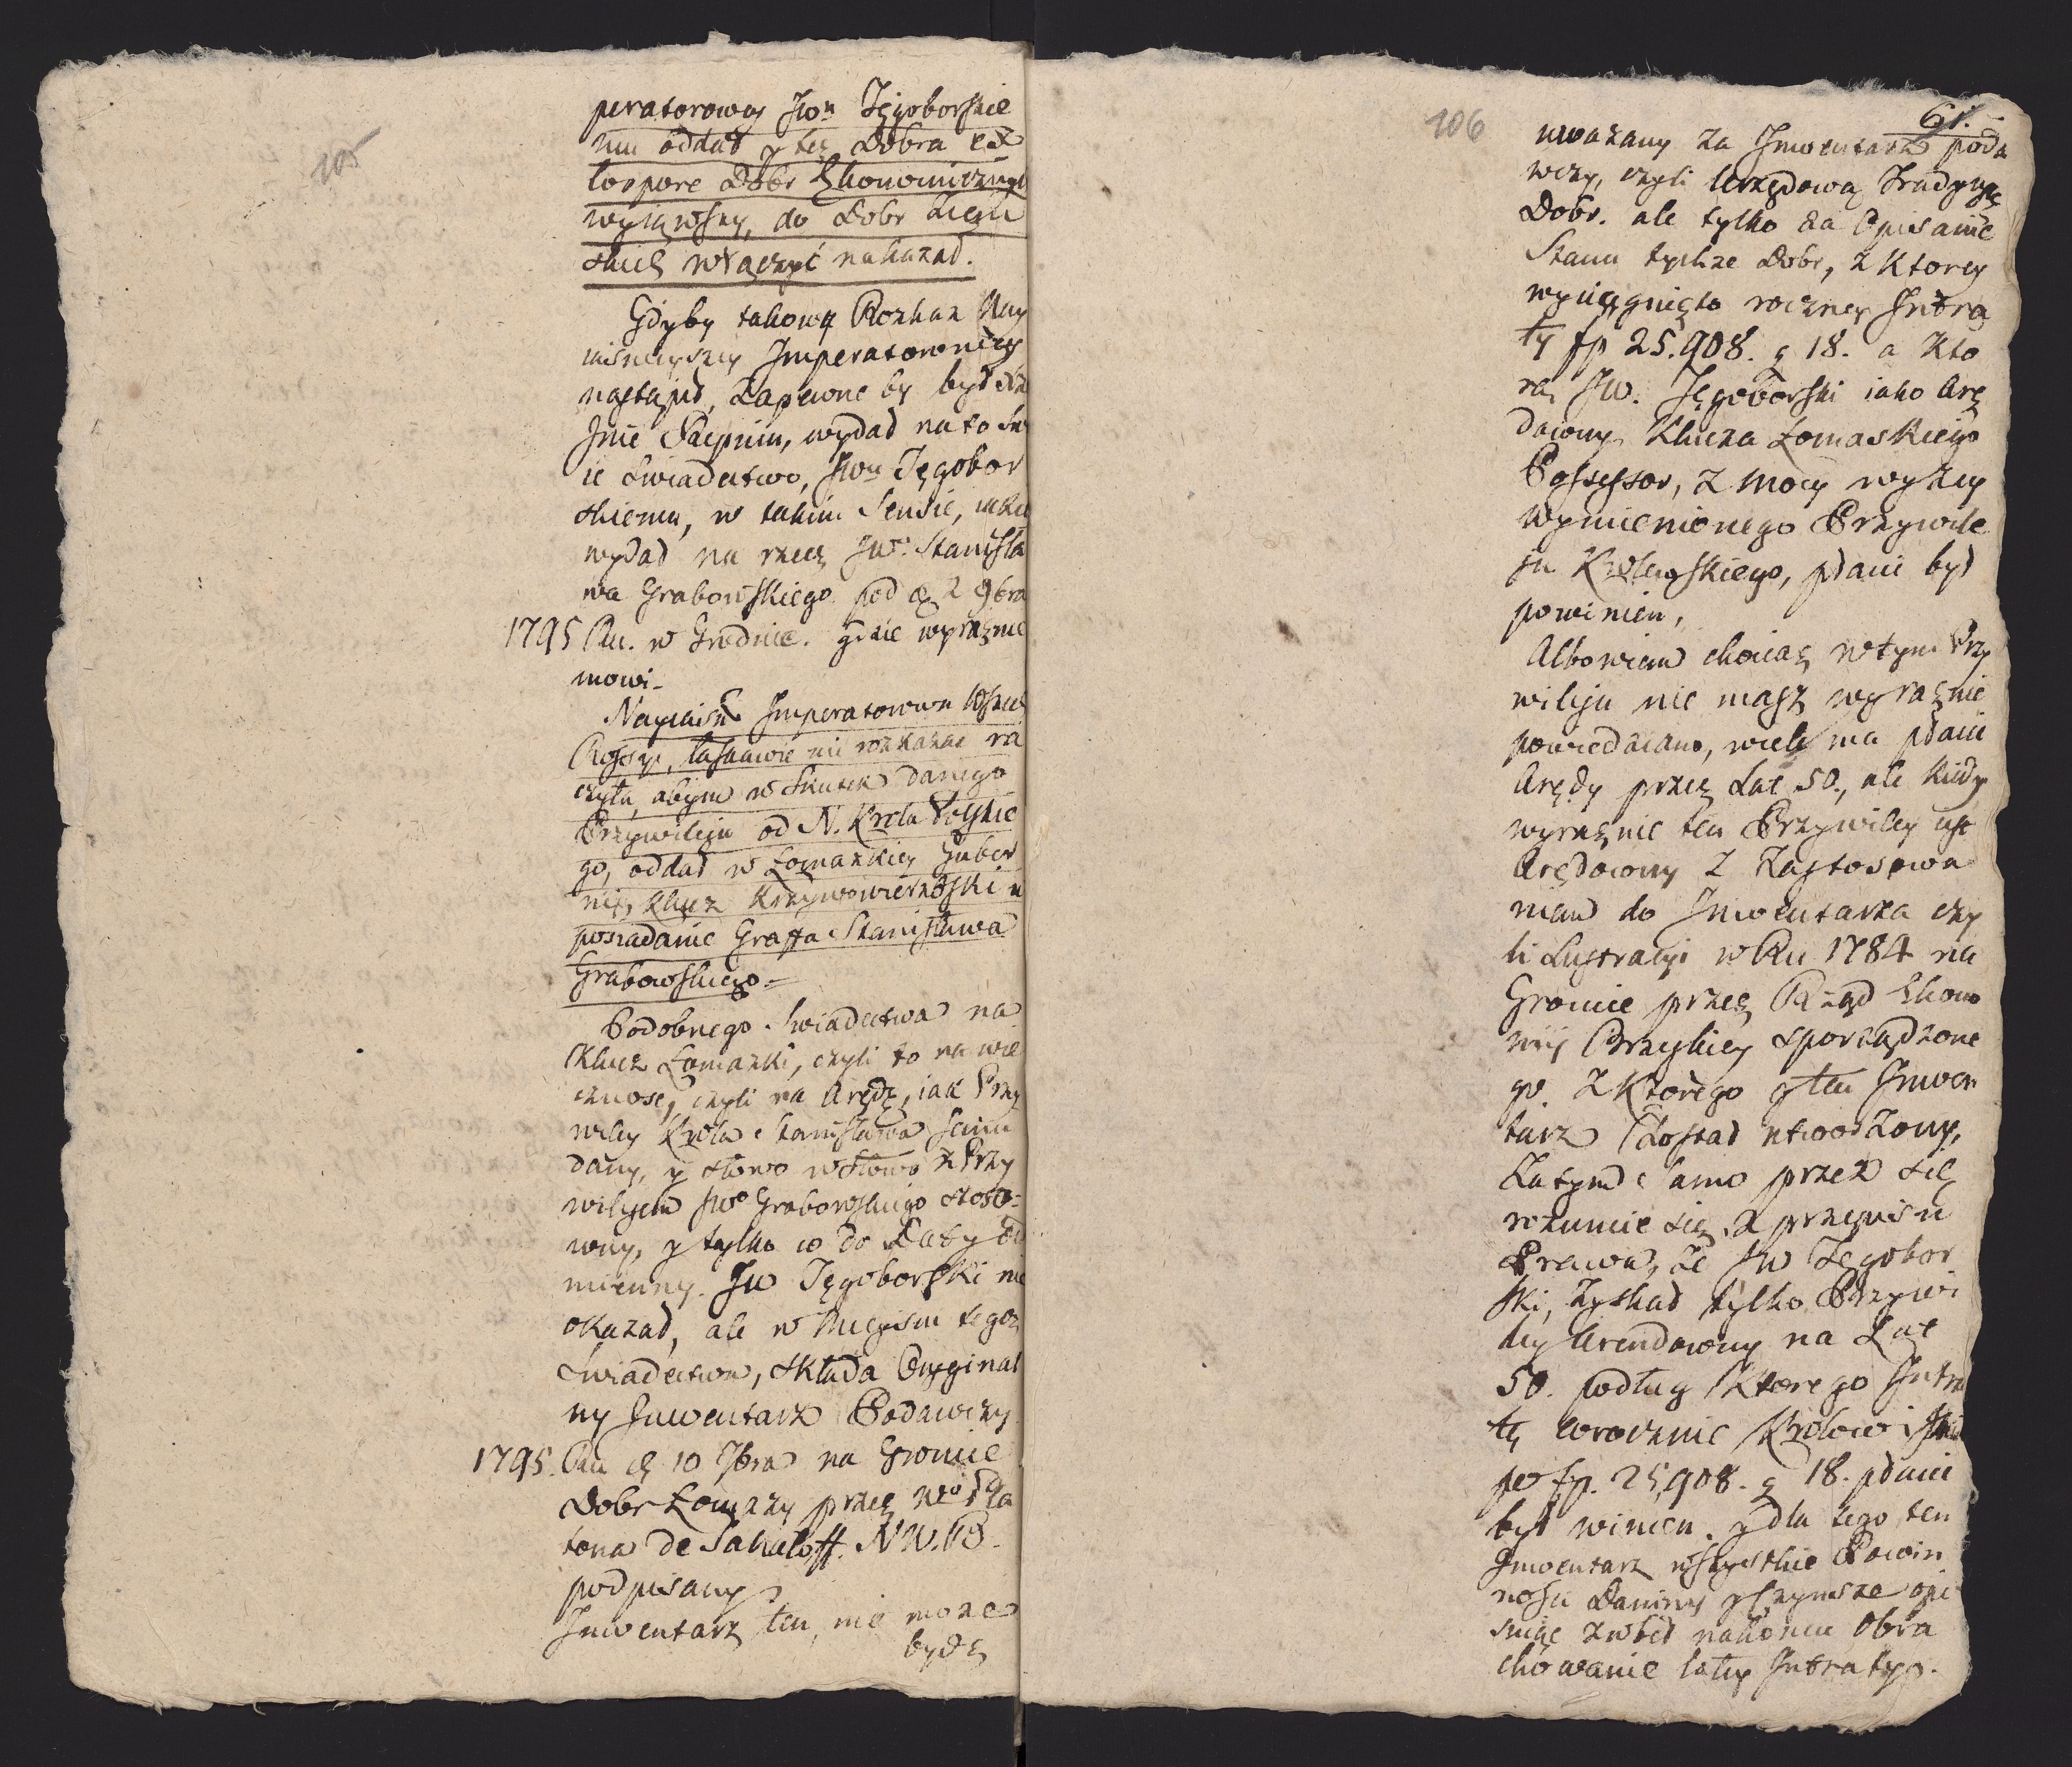 105
peratorowey Jwu Tęgoborskie
mu oddał y też Dobra ex
corpore Dobr Ekonomicznych
wyiąwszy, do Dobr Ziem
skich włączyć nakazał.
Gdyby takowy Rozkaz Nay
iaśnieyszey Imperatorowiczey
nastąpił, Zapewne by był Xże
Jmć Repnin, wydał na to Sw
ie swiadectwo, Jwu Tęgobor
skiemu, w takim Sensie, iakie
wydał na rzecz Jwo Stanisła
wa Grabowskiego pod d. 2 9bra
1795 Ru. w Grodnie. gdzie wyraznie
mowi-
Nayiaśn Imperatorowa Wszech
Rossyi, łaskawie mi rozkazać ra
czyła, abym w Skutek danego
Przywileju od N. Krola Polskie
go, oddał w Łomazkiey Guber
nij, Klucz Krzywowierzbski w
posiadanie Graffa Stanisława
Grabowskiego.=
Podobnego Swiadectwa na
Klucz Łomazki, czyli to na wie
cznosc, czyli na Arędę, iak Przy
wiley Krola Stanisława Jemu
dany, y słowo w słowo z Przy
wilejem Jwo Grabowskiego stoso=
wny, y tylko co do Daty od
mienny. Jw Tęgoborski nie
okazał, ale w mieyscu tegoż
Swiadectwa, składa Oryginal
ny Inwentarz Podawczy
1795. Ru d. 10 7bra na Groncie
Dobr Łomazy przez Wo Pla
tona de Sakaloff. N. W. K.
podpisany.
Inwentarz ten, nie może
bydz
106
61.
uważany za Inwentarz poda
wczy, czyli Urzędową Tradycyę
Dobr. ale tylko za Opisanie
Stanu tychże Dobr, z ktorey
wyciągnięto roczney Intra
ty fp 25.908. g 18. a kto
rą Jw. Tęgoborski iako Arę
downy Klucza Łomaskiego
Possessor, z mocy wyżey
wymienionego Przywile
ju Krolewskiego, płacić był
powinien,
Albowiem chociaż w tym Przy
wileju nie masz wyraznie
powiedziano, wiele ma płacić
Arędy przez Lat 50., ale kiedy
wyraznie ten Przywiley jest
Arędowny z Zastosowa
niem do Inwentarza czy
li Lustracyi w Ru 1784 na
Groncie przez Rząd Ekono
mij Brzyskiey sporządzone
go. z ktorego y ten Inwen
tarz Został utworzony,
Zatym samo przez się
rozumie się, z przepisu
Prawa, że Jw Tęgobor
ski, zyskał tylko Przywi
ley Arendowny na Lat
50. podług Ktorego Intra
tę corocznie Krolowi Jmci
po fp. 25,908. g 18. płacić
był winien. y dla tego ten
Inwentarz wszystkie Powin
nosci Daniny y Czynsze opi
suiąc zrobił nakoncu Obra
chowanie całey Intraty.